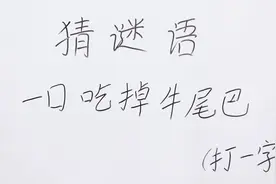 猜谜语
一口吃掉牛尾巴
(打一字